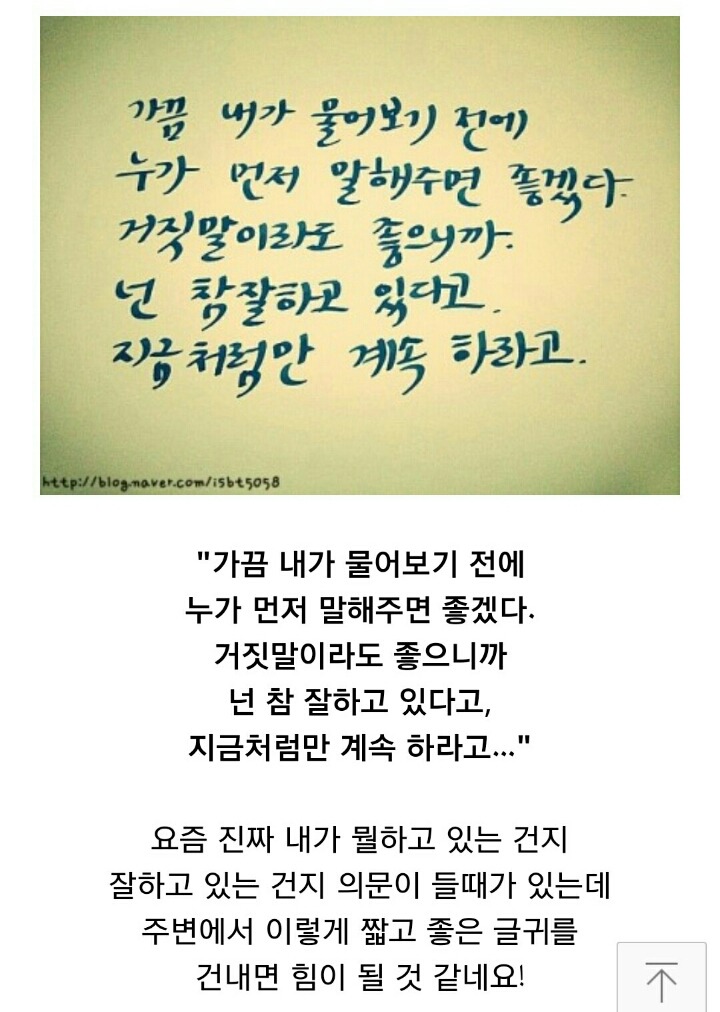 가끔 내가 물어보기 전에
누가 먼저 말해주면 좋겠다.
거짓말이라도 좋으니까.
넌 참 잘하고 있다고.
지금처럼만 계속 하라고.
http://blog.naver.com/i5bt5058
"가끔 내가 물어보기 전에
누가 먼저 말해주면 좋겠다.
거짓말이라도 좋으니까
넌 참 잘하고 있다고,
지금처럼만 계속 하라고..."
요즘 진짜 내가 뭘하고 있는 건지
잘하고 있는 건지 의문이 들때가 있는데
주변에서 이렇게 짧고 좋은 글귀를
건내면 힘이 될 것 같네요!